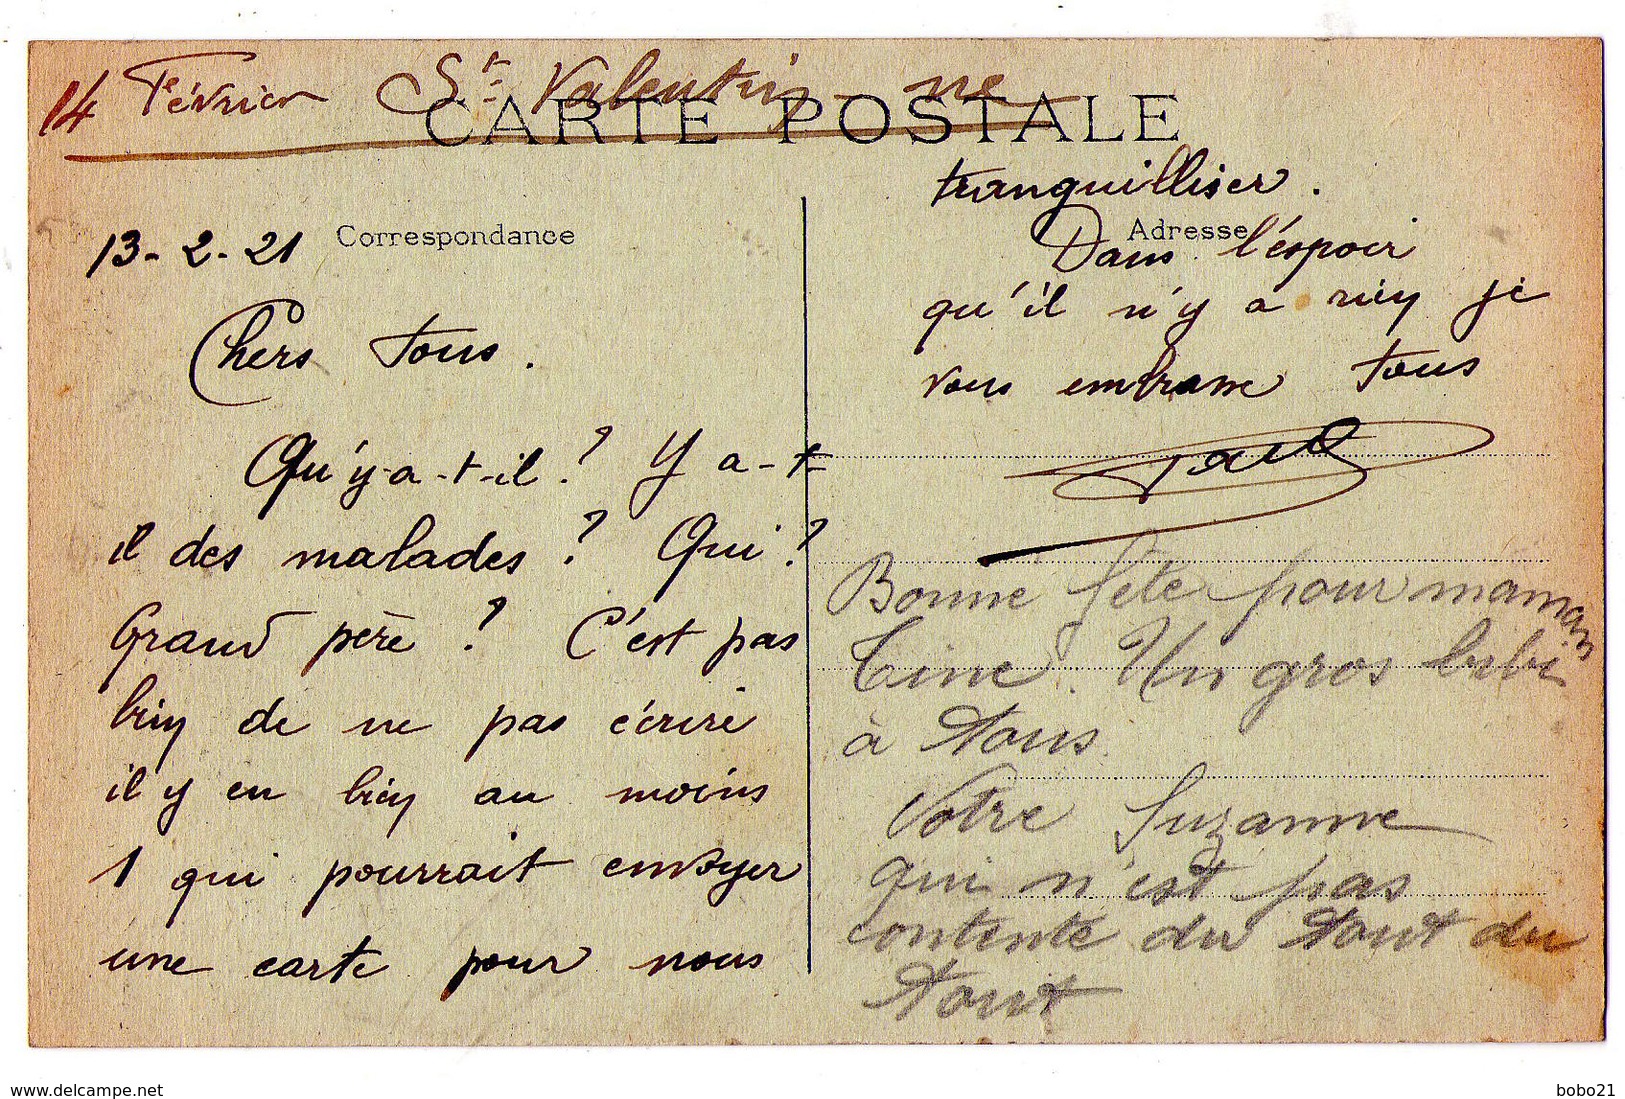 14 Février St Valentin ne
CARTE POSTALE
13-2-21 Correspondance
Chers tous.
Qu'y-a-t-il ? Y a-t-
il des malades ? Qui ?
Grand père ? C'est pas
bien de ne pas écrire
il y en bien au moins
1 qui pourrait envoyer
une carte pour nous
tranquilliser.
Adresse
Dans l'espoir
qu'il n'y a rien je
vous embrasse tous
Paul
Bonne fête pour maman
Tine. Un gros bibi
à tous.
Votre Suzanne
qui n'est pas
contente du tout du
tout
www.delcampe.net
bobo21